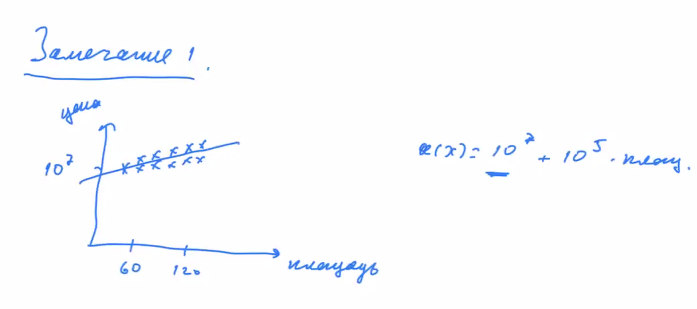 Замечание 1.
цена
10⁷
60 120
площадь
a(x) = 10⁷ + 10⁵ · площ.